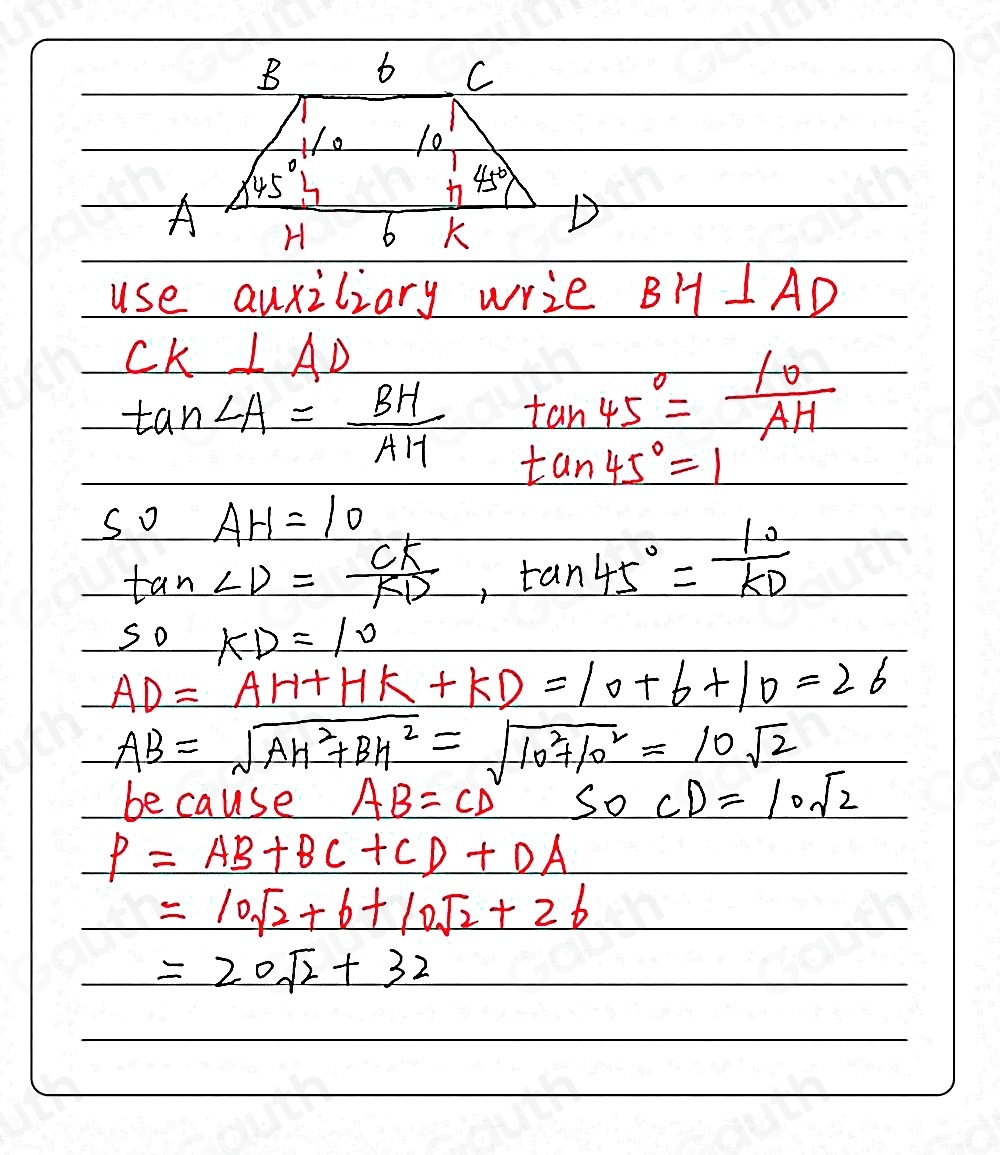 B 6 C
10 10
45° 45°
A H 6 K D
use auxiliary wrie BH ⊥ AD
CK ⊥ AD
tan∠A = BH/AH tan45° = 10/AH
tan45° = 1
so AH = 10
tan∠D = CK/KD , tan45° = 10/KD
so KD = 10
AD = AH+HK+KD = 10+6+10 = 26
AB = √(AH²+BH²) = √(10²+10²) = 10√2
because AB = CD so CD = 10√2
P = AB+BC+CD+DA
= 10√2+6+10√2+26
= 20√2+32
Gauth